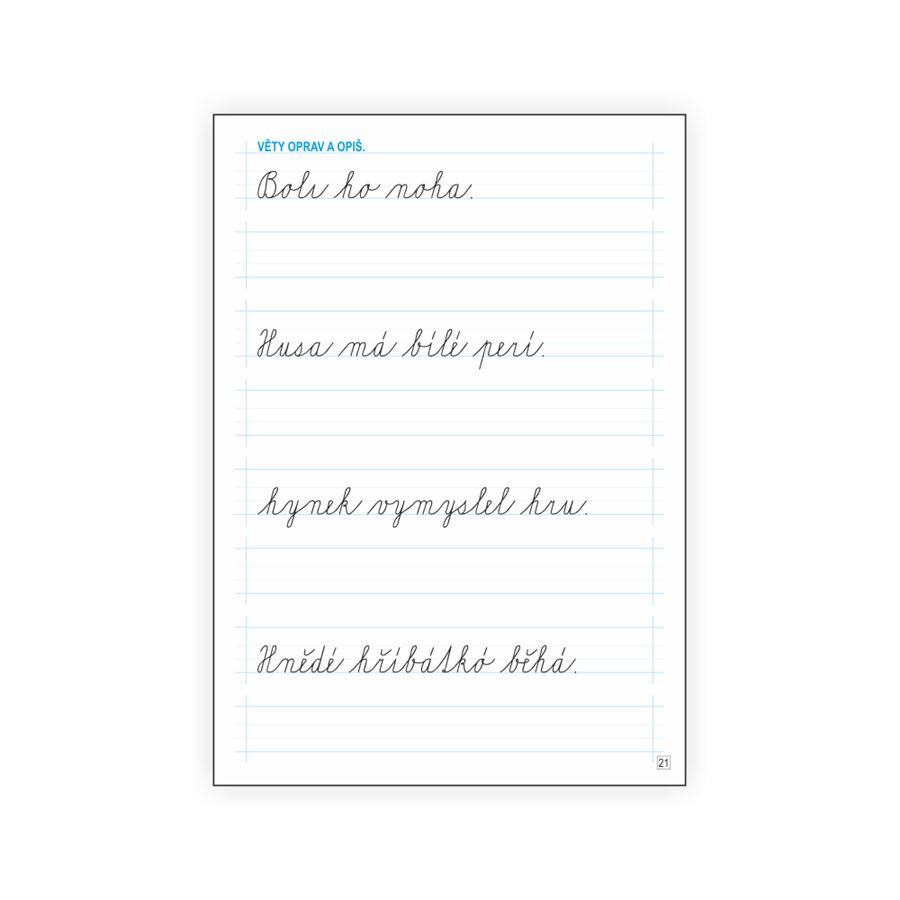 VĚTY OPRAV A OPIŠ.
Bolı ho noha.
Husa má bílé perí.
hynek vymyslel hru.
Hnědé hříbátkó běhá.
21